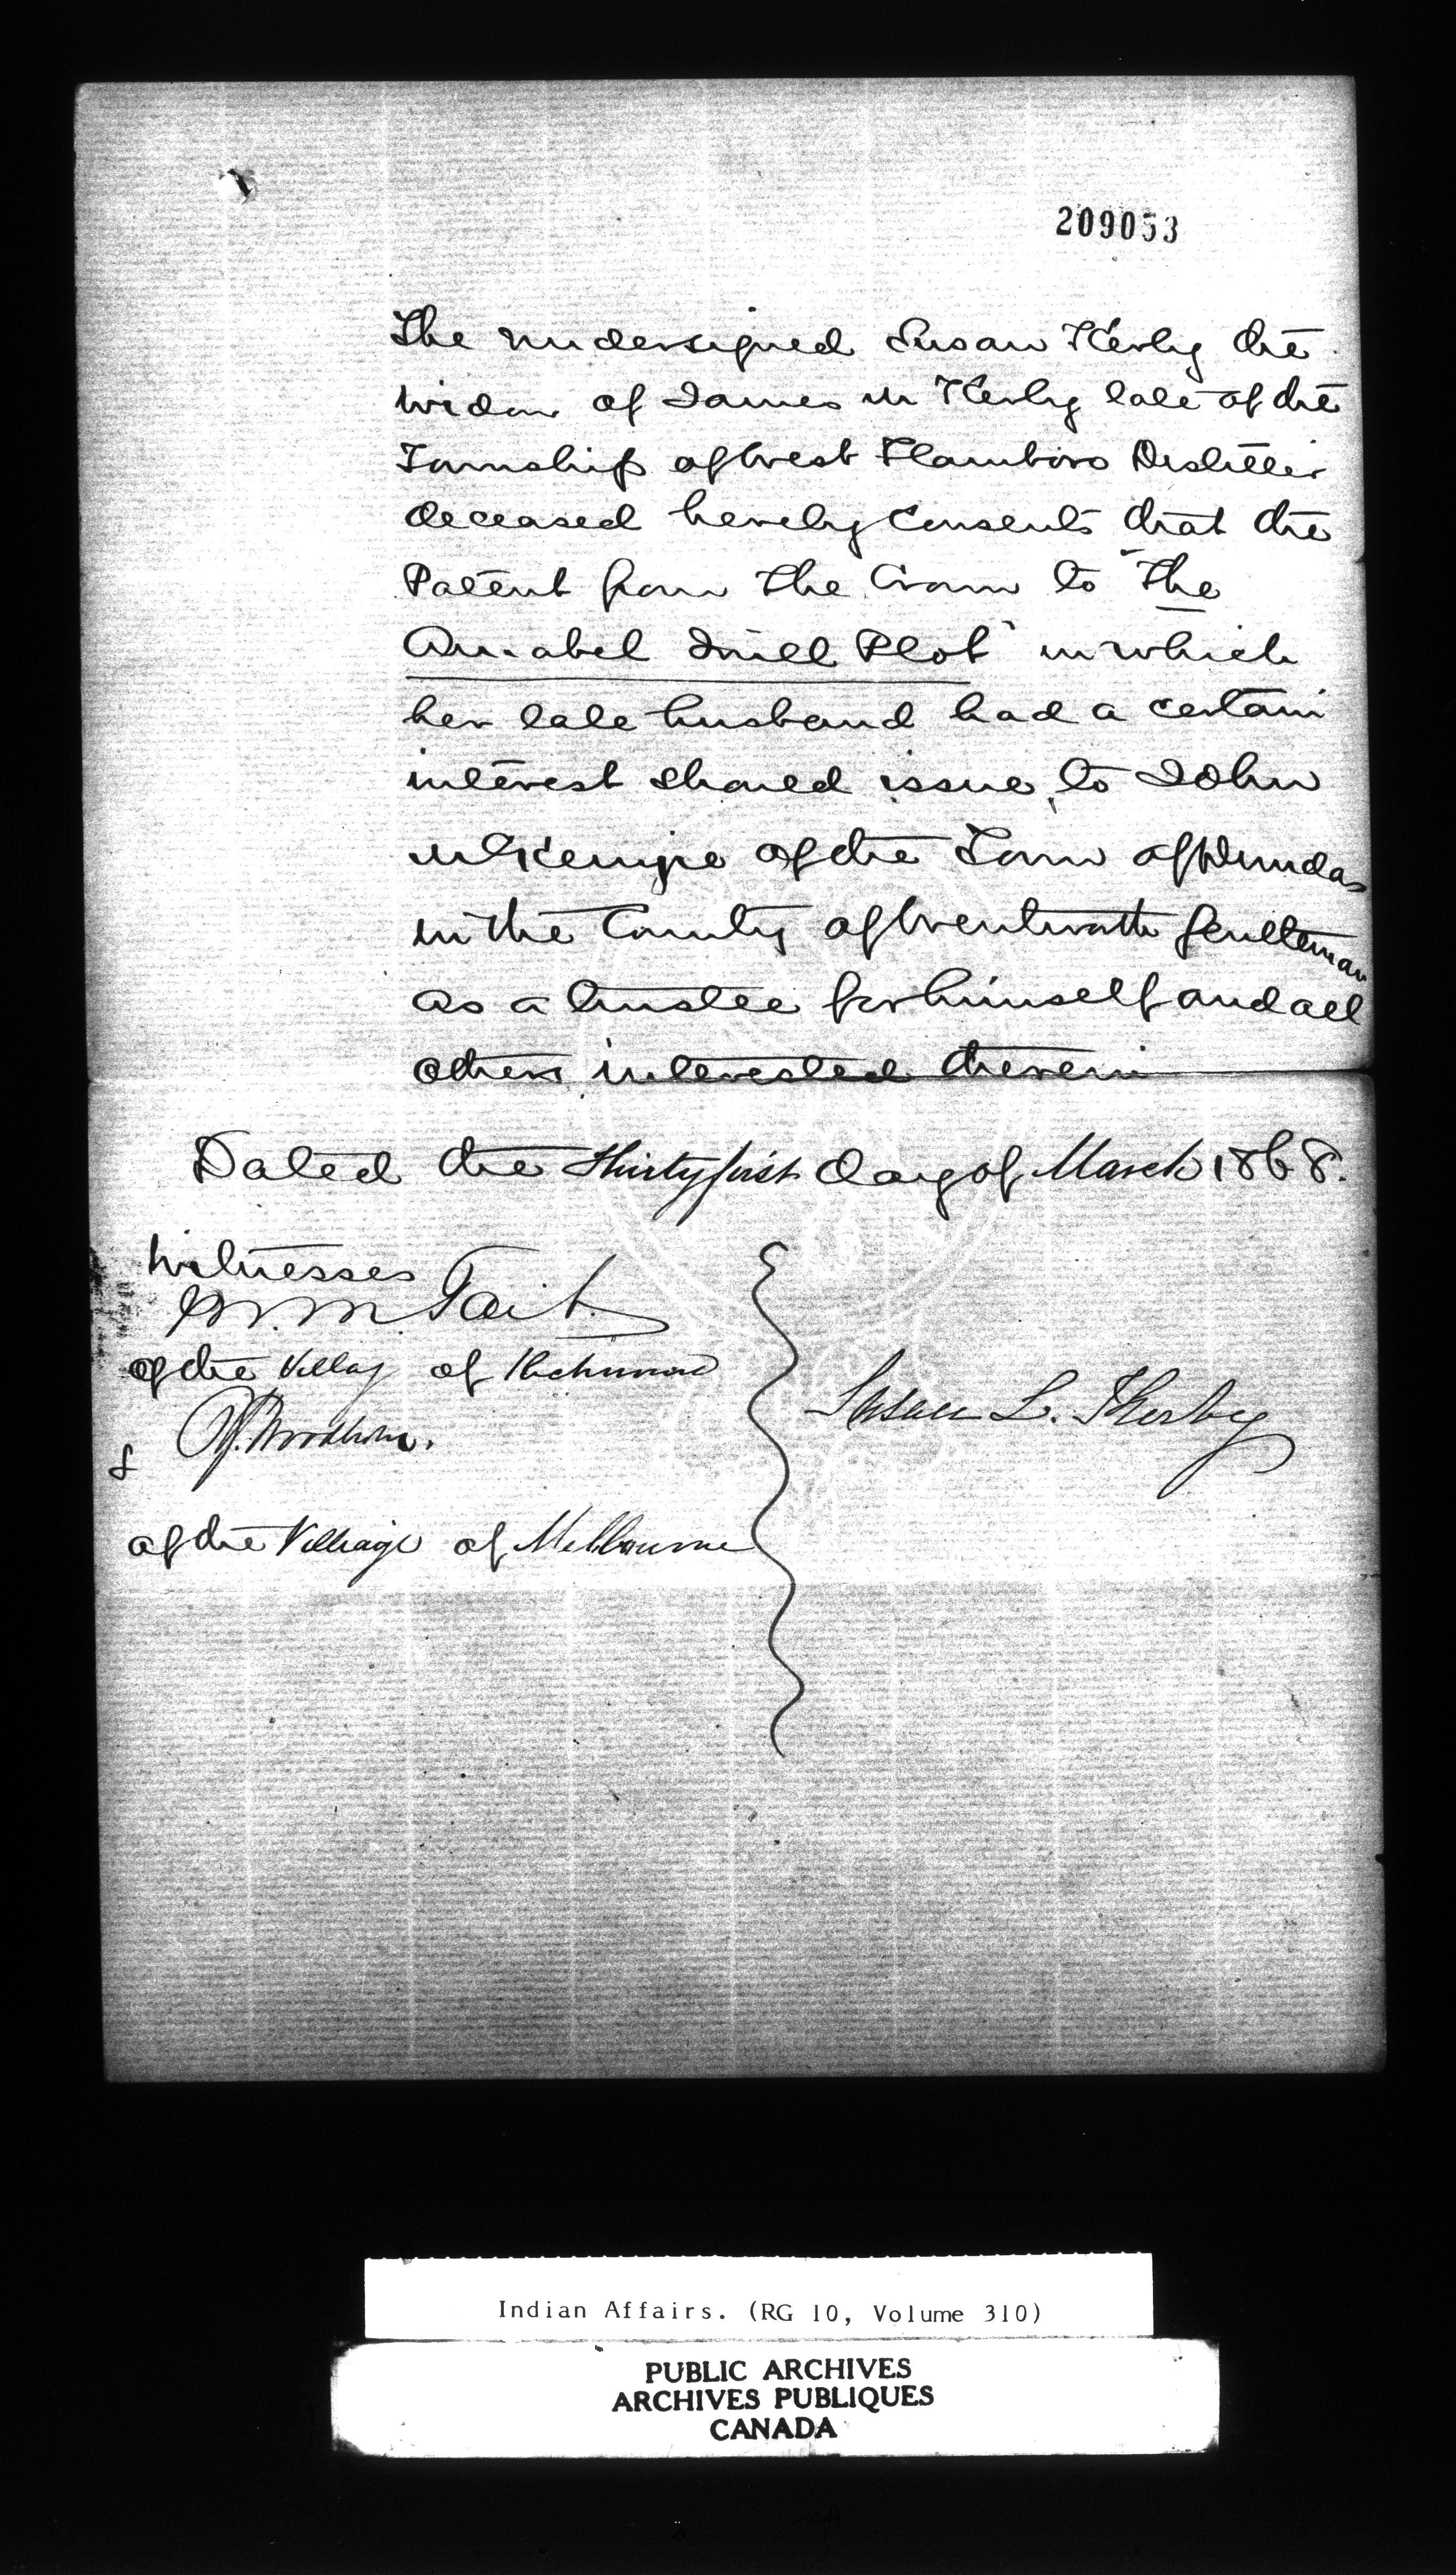 209053
The undersigned Susan Kerby the
widow of James M Kerby late of the
Township of West Flamboro Distiller
deceased hereby consents that the
Patent from the Crown to "The
Amabel Mill Plot" in which
her late husband had a certain
interest should issue to John
McKenzie of the Town of Dundas
in the County of Wentworth Gentleman
as a trustee for himself and all
others interested therein
Dated the Thirty first day of March 1868.
Witnesses
W. M. Tait
of the Village of Richmond
&
of the Village of Melbourne
Susan L. Kerby
Indian Affairs. (RG 10, Volume 310)
PUBLIC ARCHIVES
ARCHIVES PUBLIQUES
CANADA